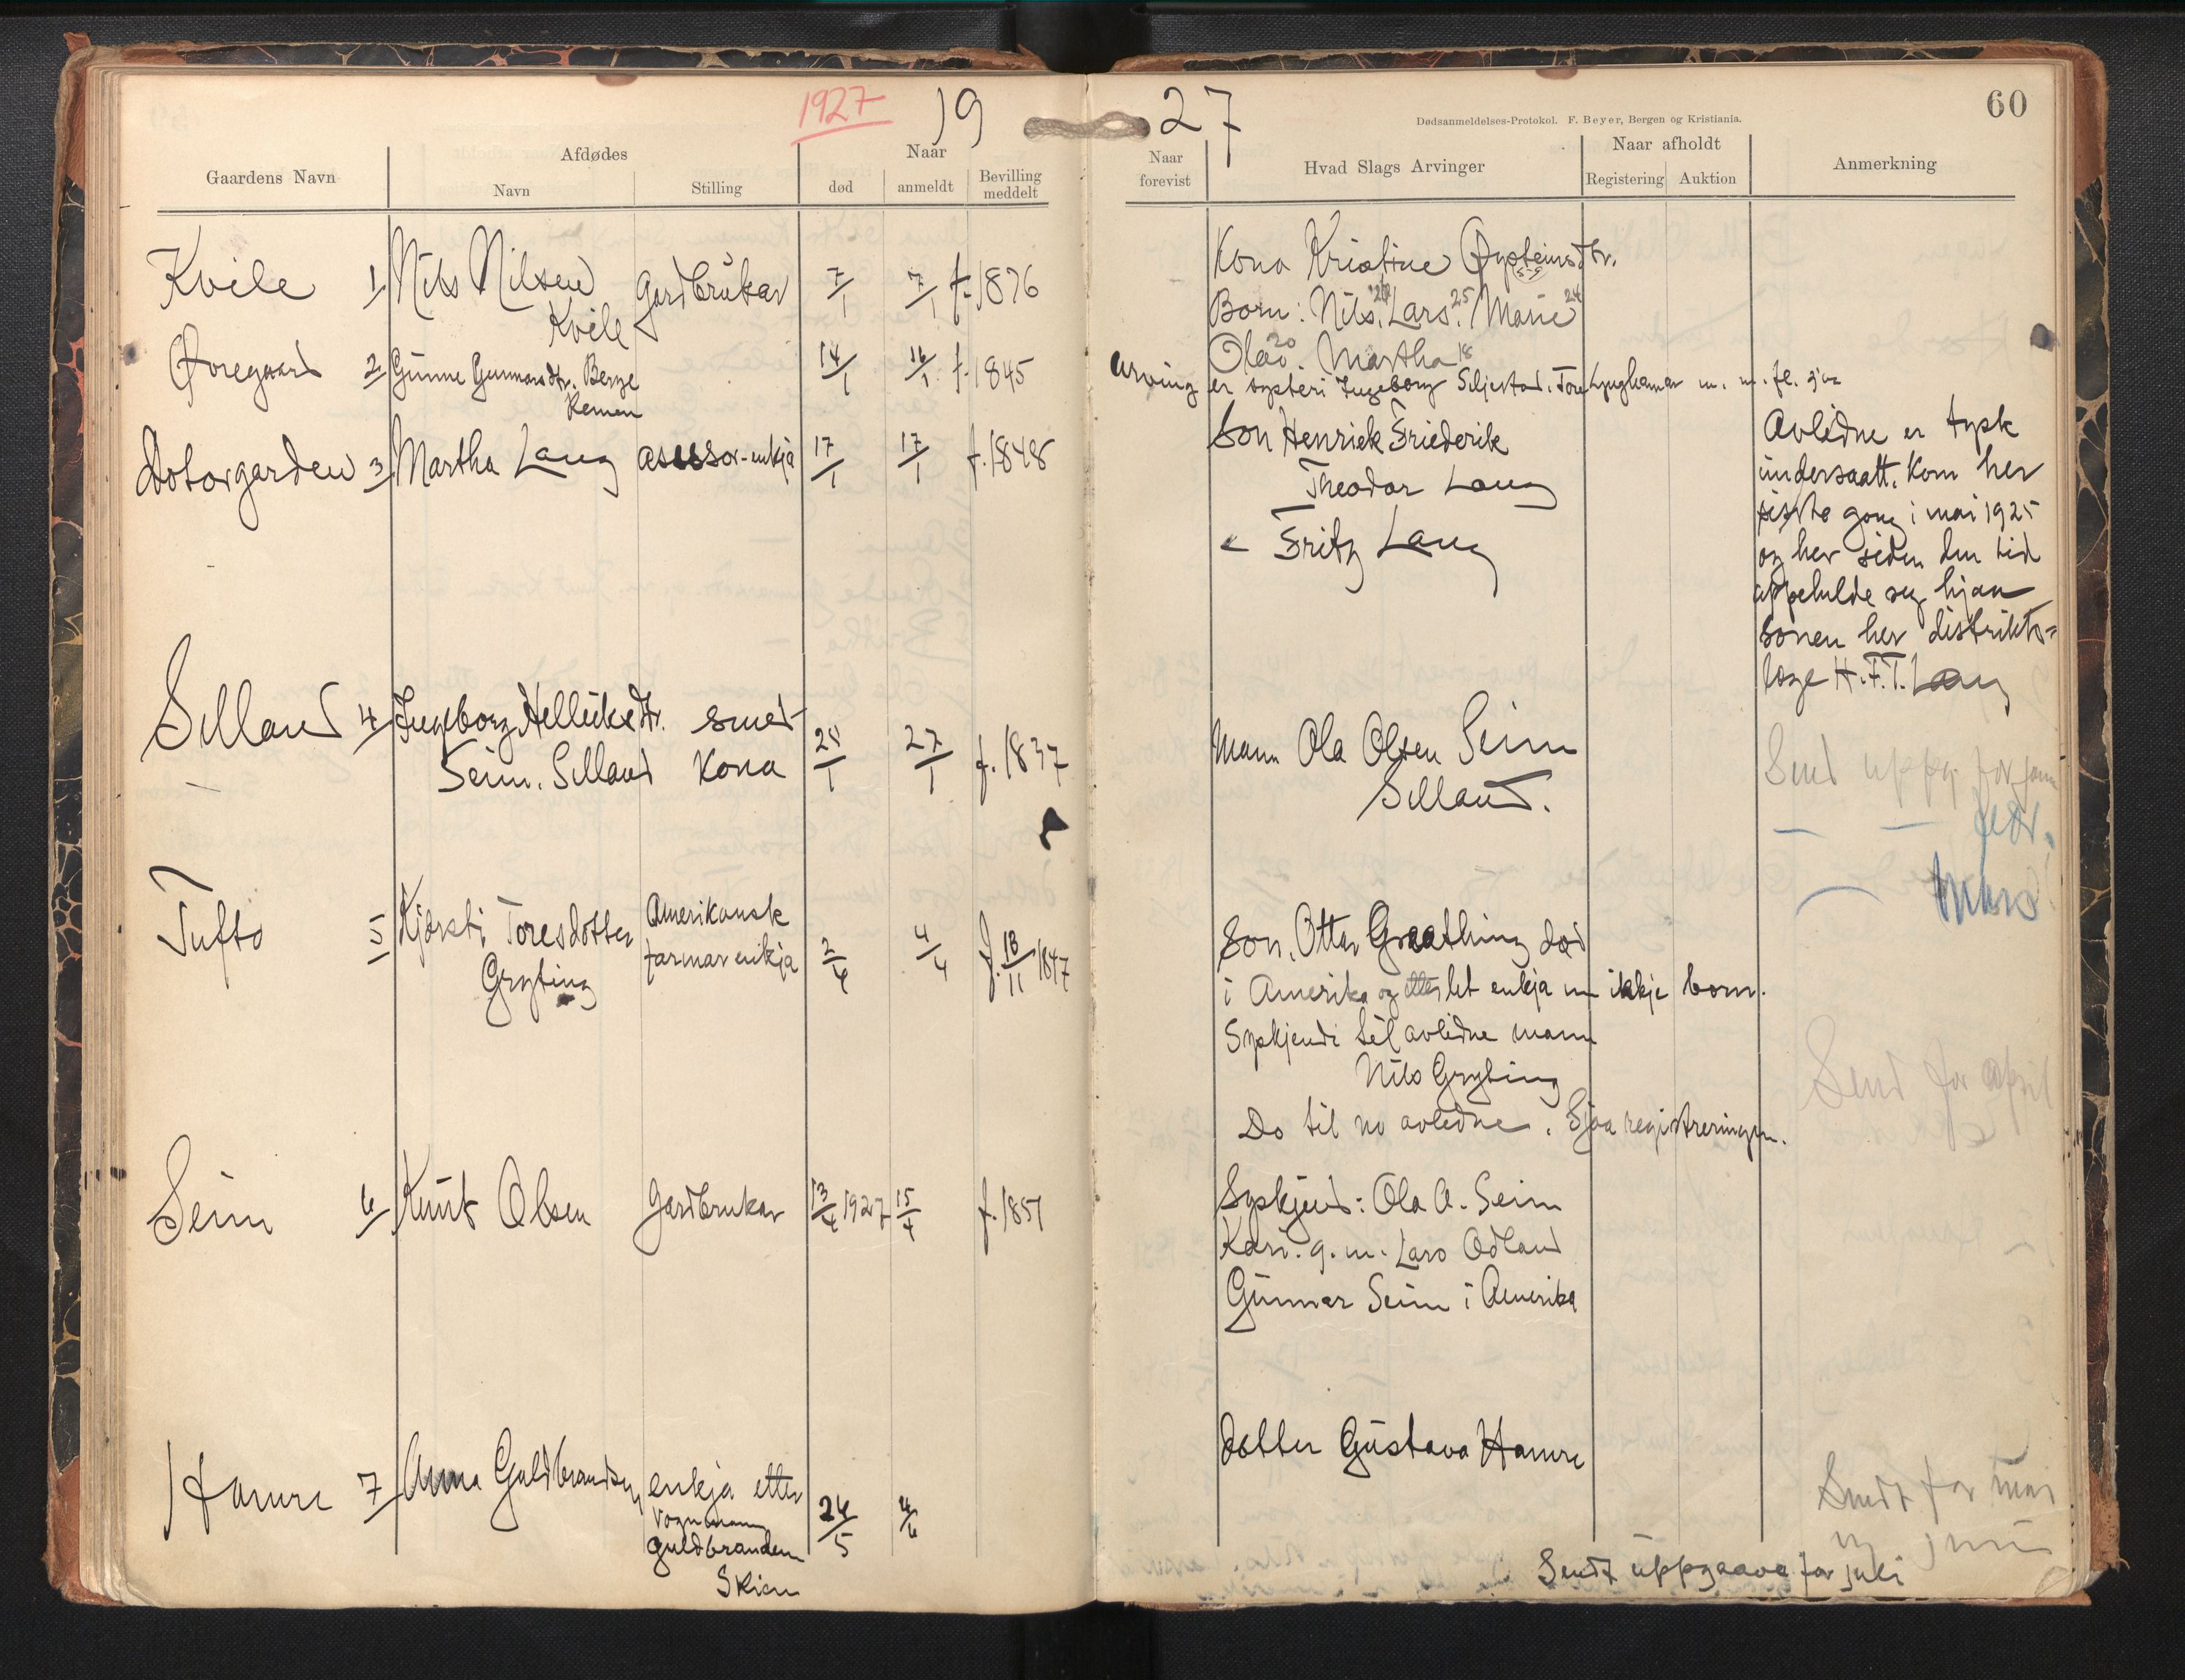 1927
19 27
60
Dødsanmeldelses-Protokol. F. Beyer, Bergen og Kristiania.
Gaardens Navn
Afdødes
Navn
Stilling
Naar
død
anmeldt
Bevilling meddelt
Naar forevist
Hvad Slags Arvinger
Naar afholdt
Registering
Auktion
Anmerkning
Kvile 1 Nils Nilsen gardbrukar 7/1 7/1 f. 1876
Kvile
Kona Kristine Øysteinsdtr.
Born: Nils, Lars, 25 Marie 24
Olav. 20 Martha 18
Øvregaard 2 Gunne Gunnarsdtr. Berge 14/1 16/1 f. 1845
Remen
Arving er systeri Ingeborg Seljestad. Tore
Dotorgarden 3 Martha Lang asessor-enkja 17/1 17/1 f. 1848
Son Henriek Friederik
Theodor Lang
Fritz Lang
Avlidne er tysk
undersaatt. Kom her
siste gong i mai 1925
og her siden den tid
uppehulde seg hjaa
sonen her distrikts-
lege H.F.T. Lang
Silland 4 Ingeborg Helleiksdtr. smed 27/1 f. 1837
Seim. Silland Kona
Mann Ola Olsen Seim
Silland.
Send uppg. for jan
— — febr.
mars
Tufto 5 Kjersti Toresdotter Amerikansk 2/4 4/4 f. 18/11 1847
Gryting farmarenkja
Son. Ottar Graathing død
i Amerika og etterlet enkja men ikkje born.
Syskjendi til avlidne mann
Nils Gryting
Do til no avlidne. Sjaa registreringen.
Send for april
Seim 6 Knut Olsen Gardbrukar 13/4 1927 15/4 f. 1851
Syskjend: Ola A. Seim
Kari g. m. Lars Odland
Gunnar Seim i Amerika
Hamre 7 Anna Guldbrandsen enkja etter 24/5 4/6
Vognmann
Guldbrandsen
Skien
Dotter Gustava Hamre
Sendt for mai
og juni
Sendt uppgaave for juli